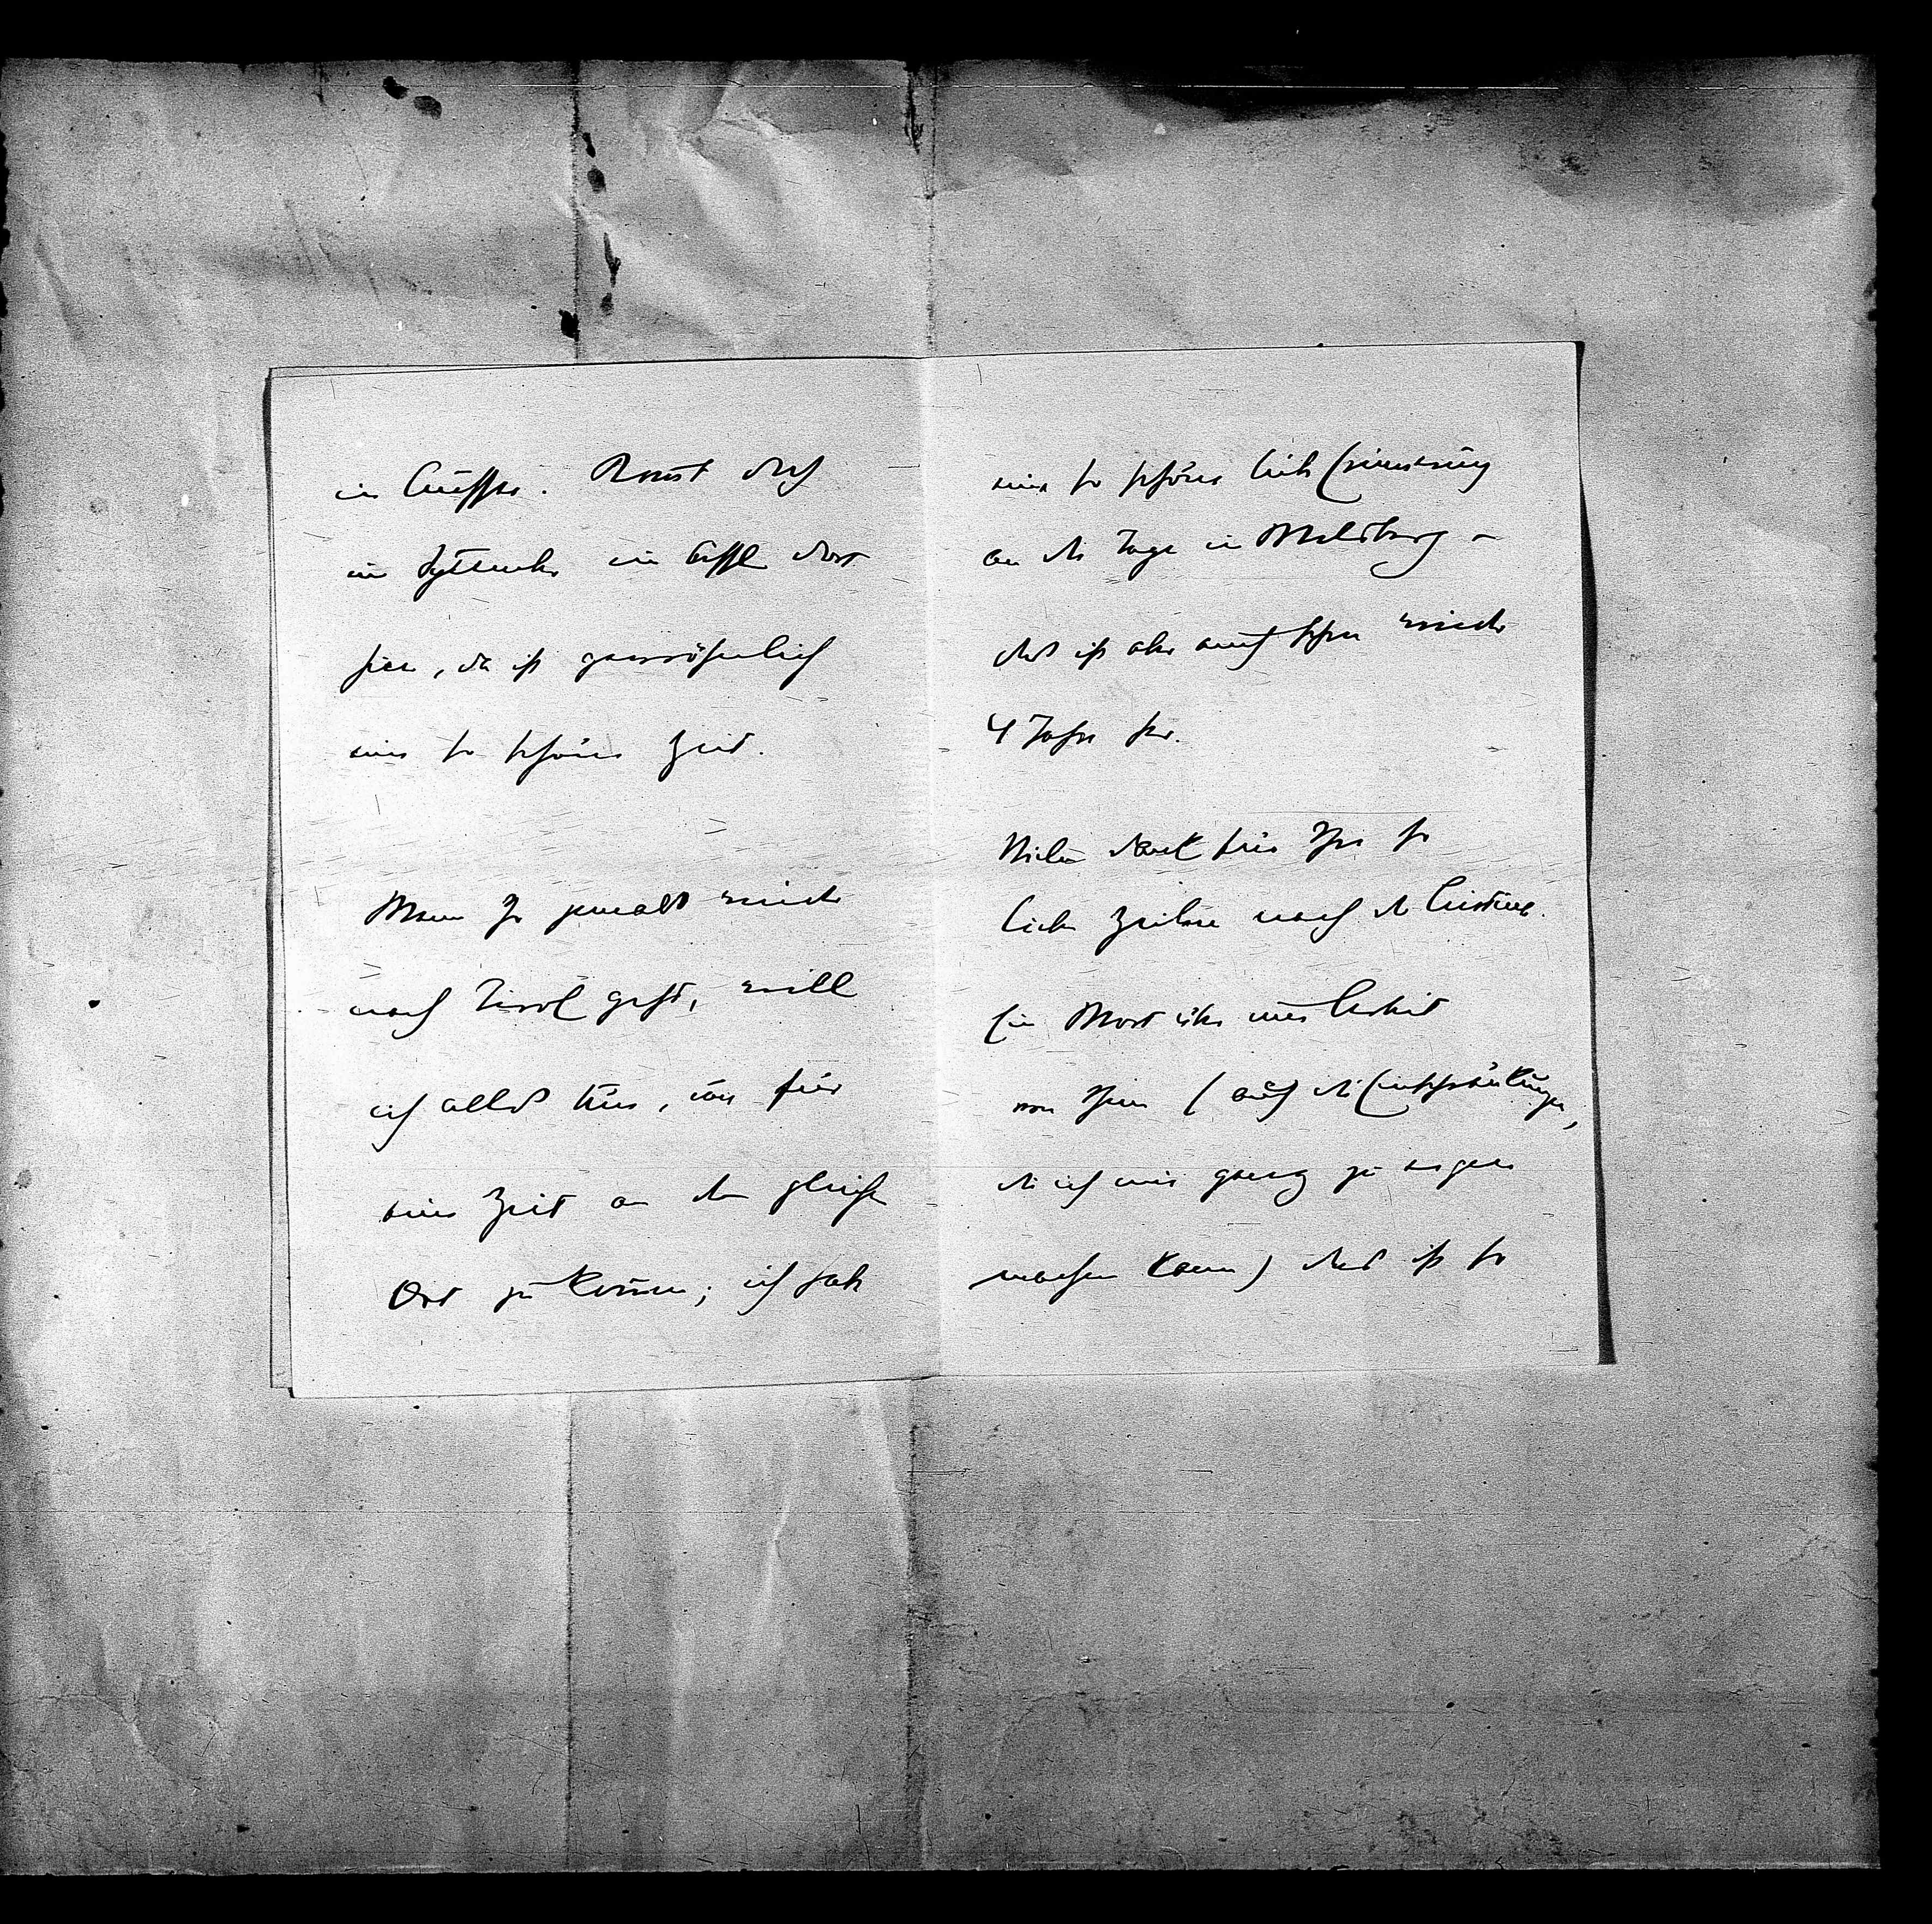 in Aussee. Komt doch
im September in Aussee dort
hier, da ist gewöhnlich
eine so schöne Zeit.
Wenn Ihr jemals wieder
nach Tirol geht, will
ich alles tun, um für
eine Zeit an den gleichen
Ort zu kommen; ich habe
eine so schöne liebe Erinnerung
an die Tage in Welsberg –
das ist aber auch schon wieder
4 Jahre her.
Vielen Dank für Ihre so
lieben Zeilen nach der
Ein Wort über meine Arbeit
von Ihnen (auch die Einschränkungen,
die ich mir ganz zu eigen
machen kann) das ist so